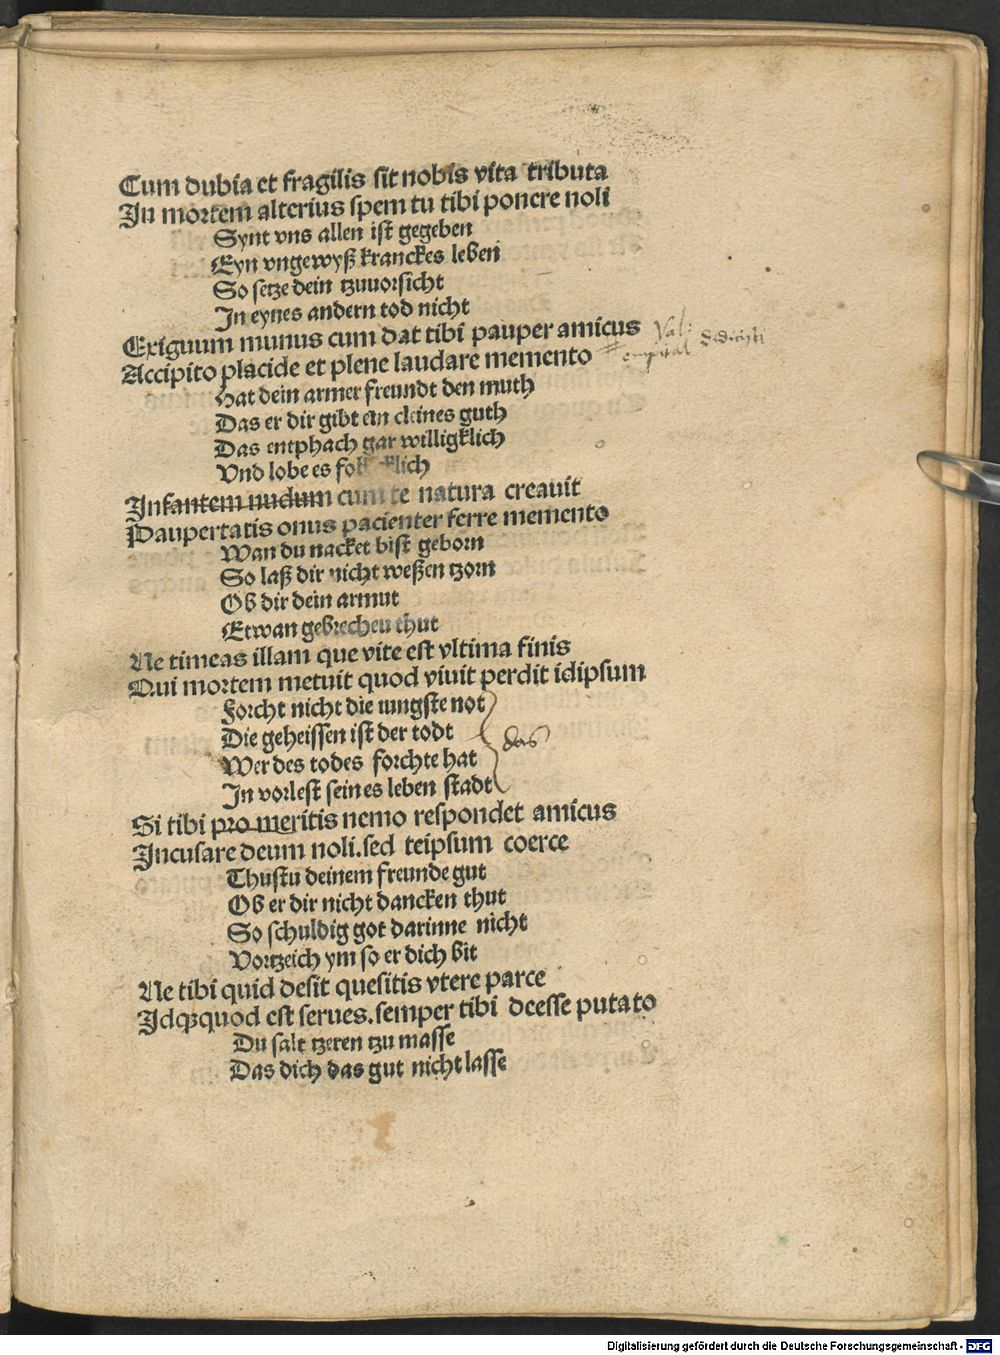 Cum dubia et fragilis sit nobis vita tributa
In mortem alterius spem tu tibi ponere noli
Synt vns allen ist gegeben
Eyn vngewyß kranckes leben
So setze dein tzuuorsicht
In eynes andern tod nicht
Exiguum munus cum dat tibi pauper amicus
Accipito placide et plene laudare memento
Hat dein armer freundt den muth
Das er dir gibt ein cleines guth
Das entphach gar willigklich
Vnd lobe es
Infantem nudum cum te natura creauit
Paupertatis onus pacienter ferre memento
Wan du nacket bist geborn
So laß dir nicht weßen tzorn
Ob dir dein armut
Etwan gebrechen thut
Ne timeas illam que vite est vltima finis
Qui mortem metuit quod viuit perdit idipsum
Forcht nicht die iungste not
Die geheissen ist der todt
das
Wer des todes forchte hat
In vorlest seines leben stadt
Si tibi pro meritis nemo respondet amicus
Incusare deum noli.sed teipsum coerce
Thustu deinem freunde gut
Ob er dir nicht dancken thut
So schuldig got darinne nicht
Vortzeich ym so er dich bit
Ne tibi quid desit quesitis vtere parce
Idqꝫ quod est serues.semper tibi deesse putato
Du salt tzeren tzu masse
Das dich das gut nicht lasse
Digitalisierung gefördert durch die Deutsche Forschungsgemeinschaft - DFG